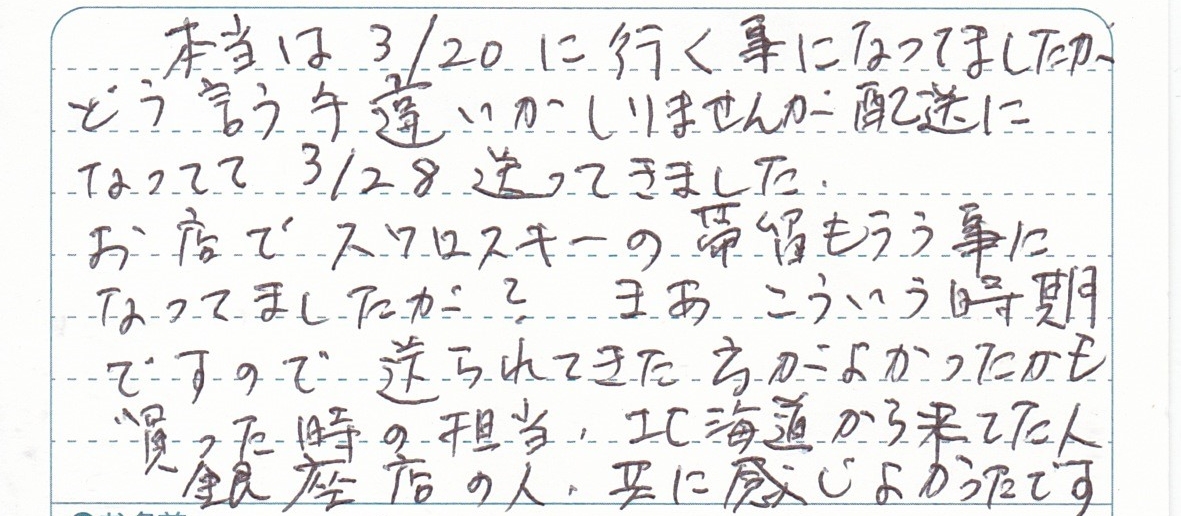 本当は 3/20 に行く事になってましたが
どう言う手違いかしりませんが配送に
なってて 3/28 送ってきました.
お店でスワロスキーの帯留もらう事に
なってましたが? まあ こういう時期
ですので送られてきた方がよかったかも
買った時の担当, 北海道から来てた人
銀座店の人, 共に感じよかったです